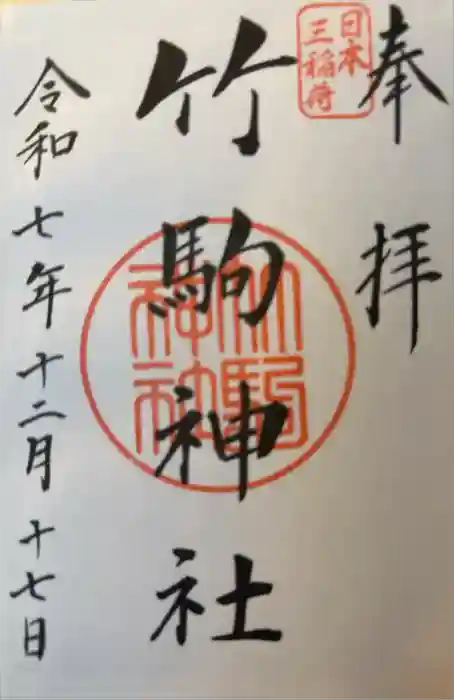 奉拝
日本
三稲荷
竹駒神社
竹駒
神社
令和七年十二月十七日